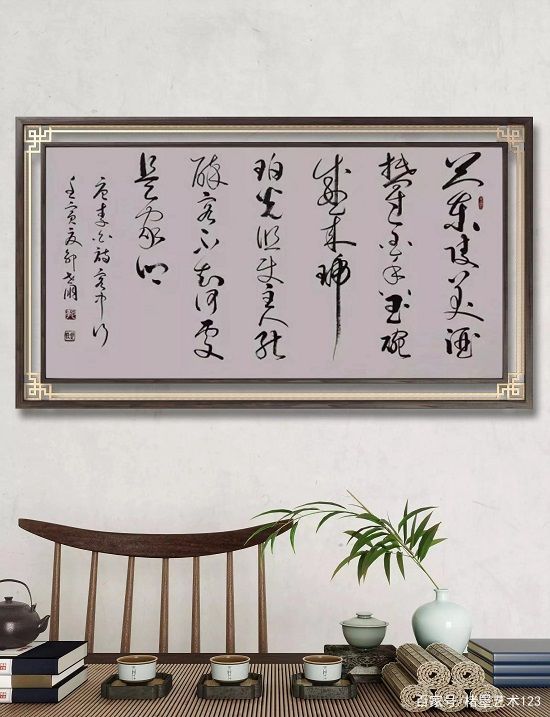 蘭陵美酒
鬱金香玉碗
盛来琥
珀光但使主人能
醉客不知何處
是鄉
唐李白詩客中行
壬寅夏
百家号/楮墨艺术123